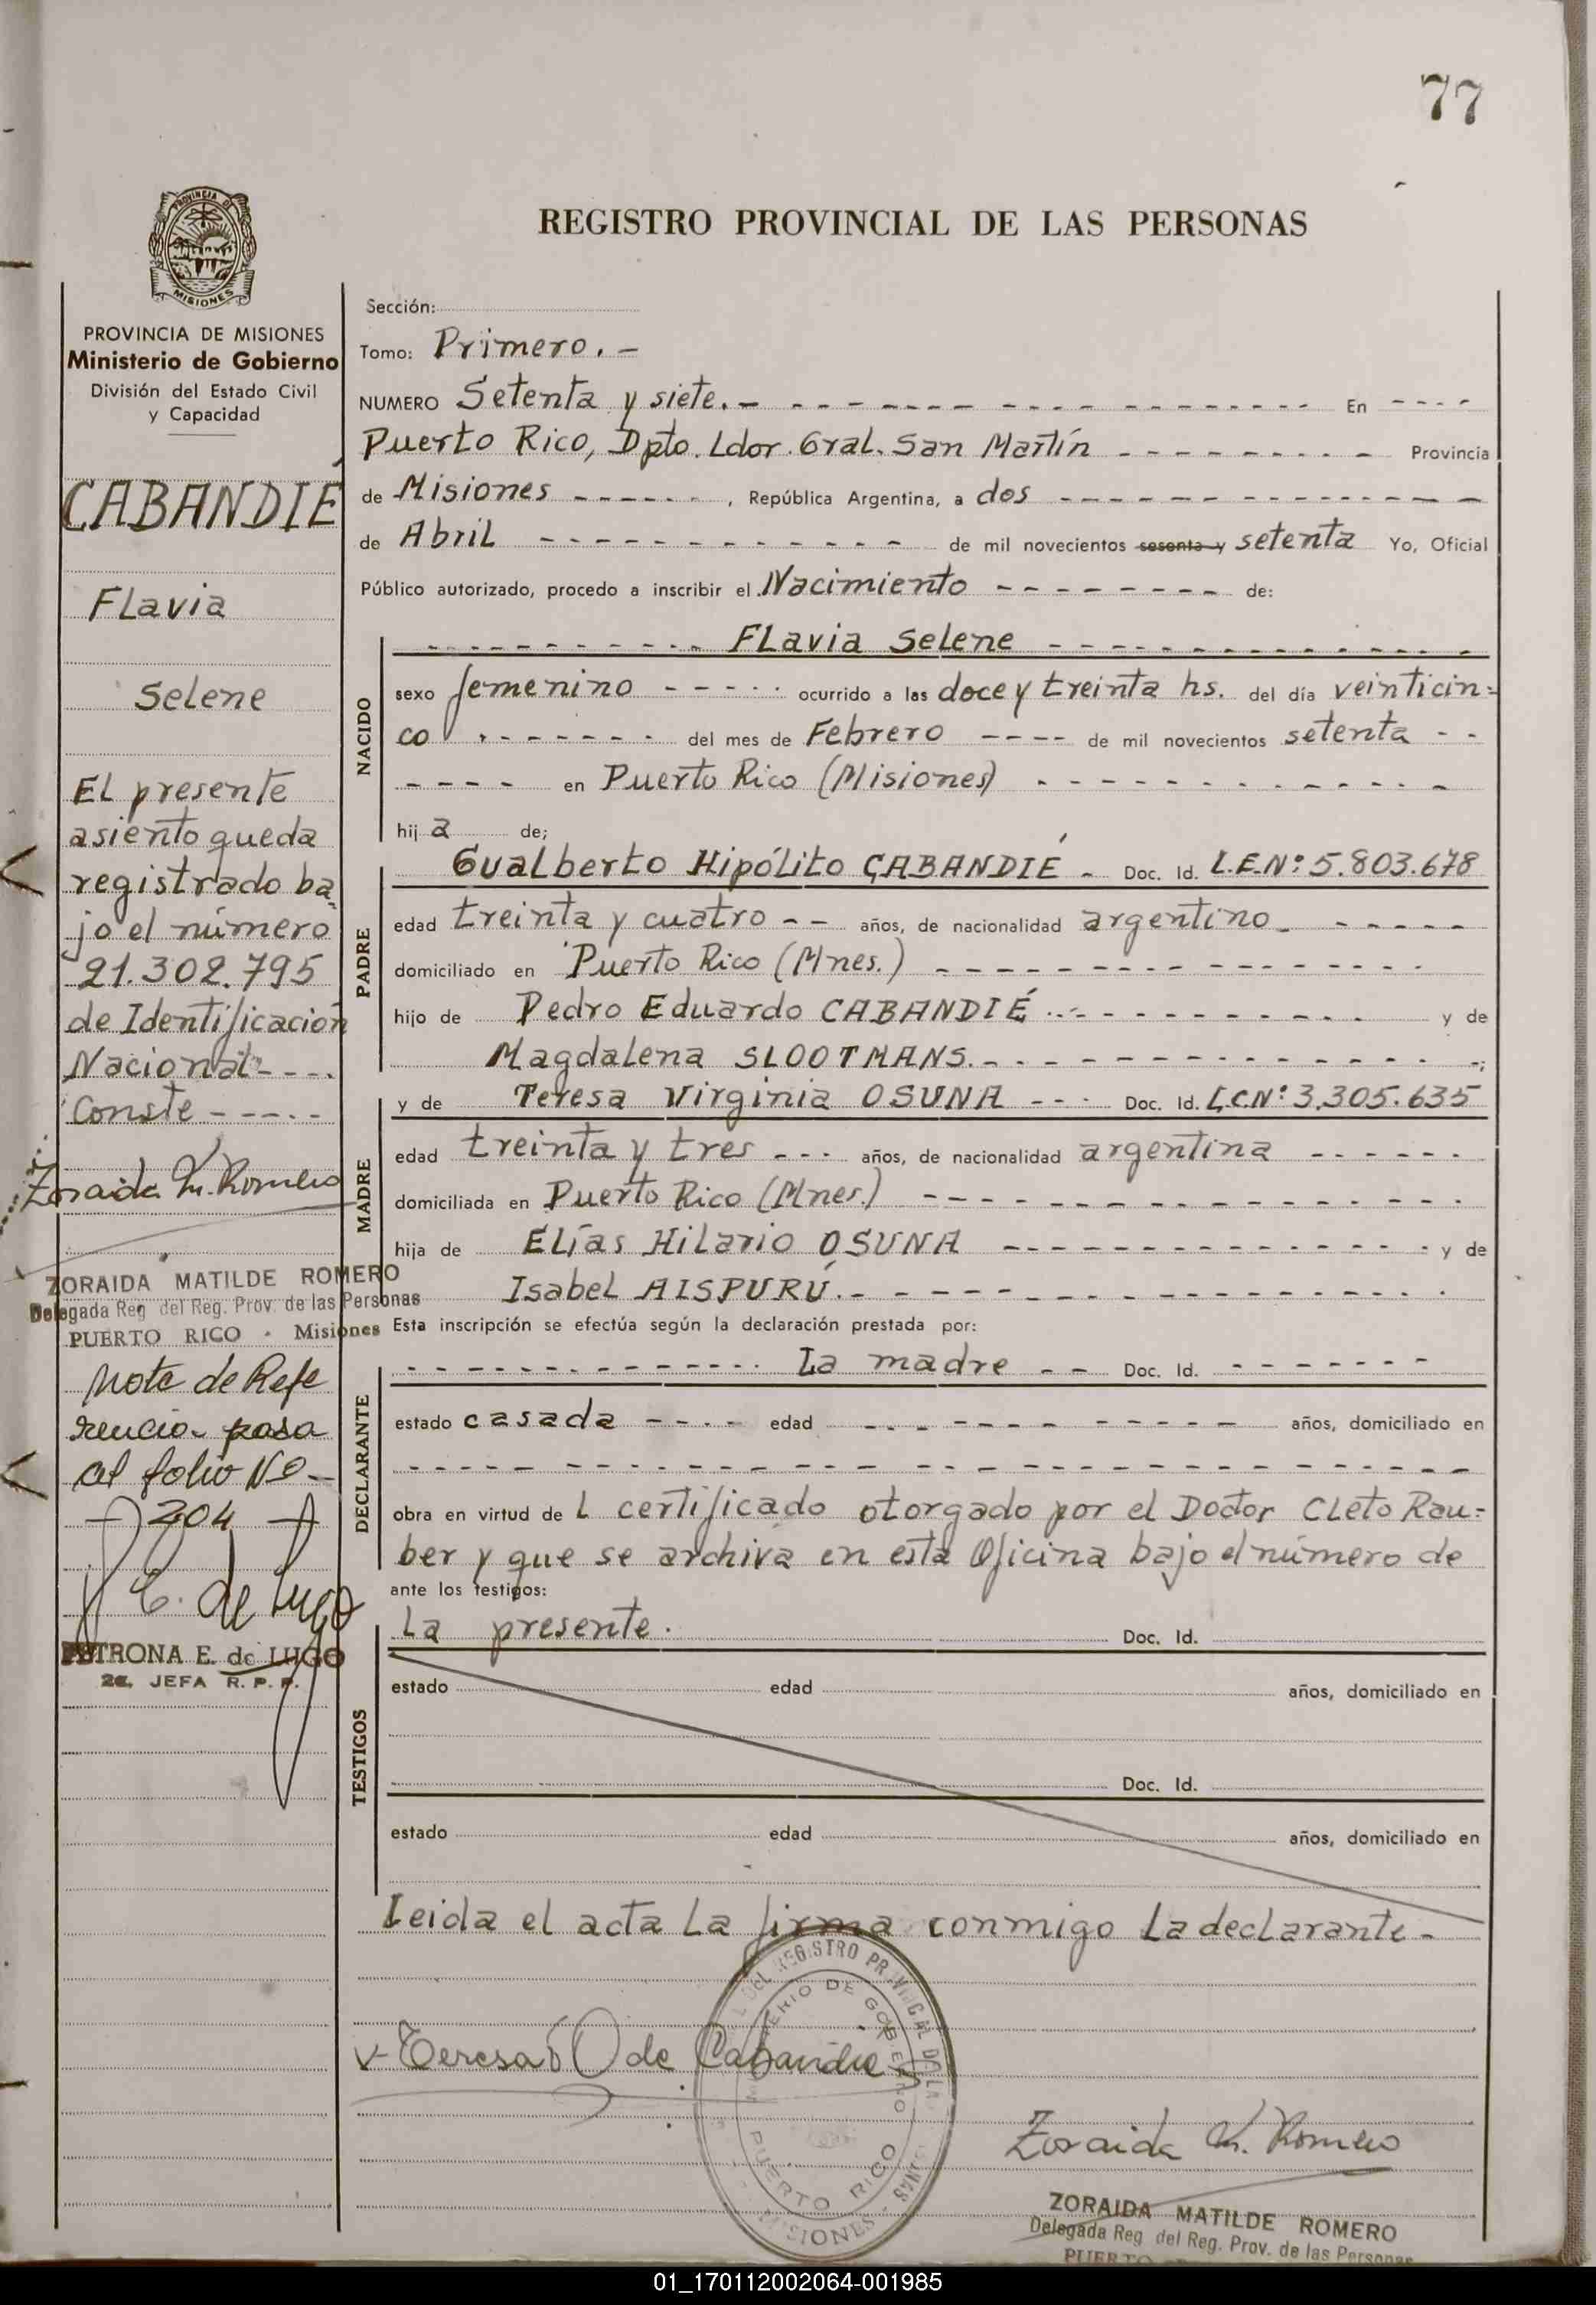 77
PROVINCIA DE
MISIONES
PROVINCIA DE MISIONES
Ministerio de Gobierno
División del Estado Civil
y Capacidad
CABANDIÉ
Flavia
Selene
El presente
asiento queda
registrado ba_
jo el número
21.302.795
de Identificación
Nacional - - - .
Conste - - - - -
Zoraida M. Romero
ZORAIDA MATILDE ROMERO
Delegada Reg del Reg. Prov. de las Personas
PUERTO RICO - Misiones
Nota de Refe
rencia - pasa
al folio Nº -
204
E. de Lugo
PETRONA E. de LUGO
2a. JEFA R. P. P.
REGISTRO PROVINCIAL DE LAS PERSONAS
Sección:
Tomo: Primero. -
NUMERO Setenta y siete. - - - - En - - - -
Puerto Rico, Dpto. Ldor. Gral. San Martín - - - - Provincia
de Misiones - - - - , República Argentina, a dos - - - -
de Abril - - - - de mil novecientos sesenta y setenta Yo, Oficial
Público autorizado, procedo a inscribir el Nacimiento - - - - de:
- - - - Flavia Selene - - - -
NACIDO
sexo femenino - - - - ocurrido a las doce y treinta hs. del día veinticin=
co - - - - del mes de Febrero - - - - de mil novecientos setenta - -
- - - - en Puerto Rico (Misiones) - - - -
hij a de;
PADRE
Gualberto Hipólito CABANDIÉ - Doc. Id. L.E.Nº: 5.803.678
edad treinta y cuatro - - años, de nacionalidad argentino - - - -
domiciliado en Puerto Rico (Mnes.) - - - -
hijo de Pedro Eduardo CABANDIÉ - - - - y de
Magdalena SLOOTMANS. - - - - ;
MADRE
y de Teresa Virginia OSUNA - - - Doc. Id. L.C.Nº: 3.305.635
edad treinta y tres - - - años, de nacionalidad argentina - - - -
domiciliada en Puerto Rico (Mnes.) - - - -
hija de Elías Hilario OSUNA - - - - y de
Isabel AISPURÚ. - - - -
Esta inscripción se efectúa según la declaración prestada por:
DECLARANTE
- - - - La madre - - Doc. Id. - - - -
estado casada - - - - edad - - - - años, domiciliado en
- - - -
obra en virtud de l certificado otorgado por el Doctor Cleto Rau=
ber y que se archiva en esta Oficina bajo el número de
ante los testigos:
TESTIGOS
la presente. Doc. Id.
estado edad años, domiciliado en
Doc. Id.
estado edad años, domiciliado en
Leida el acta la firma conmigo la declarante. -
Teresa O de Cabandié
DEL REGISTRO PROVINCIAL DE LAS PERSONAS
MINISTERIO DE GOBIERNO
PUERTO RICO
MISIONES
Zoraida M. Romero
ZORAIDA MATILDE ROMERO
Delegada Reg del Reg. Prov. de las Personas
PUERTO
01_170112002064-001985